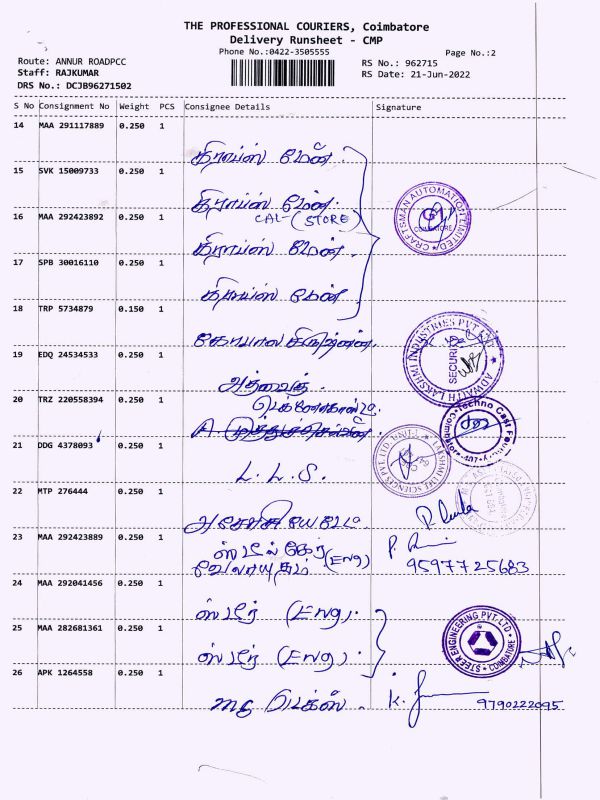 THE PROFESSIONAL COURIERS, Coimbatore
Delivery Runsheet - CMP
Phone No.:0422-3505555
Page No.:2
Route: ANNUR ROADPCC
RS No.: 962715
Staff: RAJKUMAR
RS Date: 21-Jun-2022
DRS No.: DCJB96271502
S No Consignment No Weight PCS Consignee Details Signature
14 MAA 291117889 0.250 1
கிராப்ஸ் மேன்.
15 SVK 15009733 0.250 1
கிராப்ஸ் மேன்.
CAL-(STORE)
16 MAA 292423892 0.250 1
கிராப்ஸ் மேன்.
17 SPB 30016110 0.250 1
கிராப்ஸ் மேன்.
CRAFTSMAN AUTOMATION LIMITED
COIMBATORE
18 TRP 5734879 0.150 1
19 EDQ 24534533 0.250 1
அத்வைத்
ADWAITH LAKSHMI INDUSTRIES PVT LTD
SECURITY
20 TRZ 220558394 0.250 1
21 DDG 4378093 0.250 1
L. L. S.
LAKSHMI LIFE SCIENCES PVT. LTD. UNIT-1
22 MTP 276444 0.250 1
23 MAA 292423889 0.250 1
ஸ்டீல் கேர் (Eng)
வேலாயுதம்
95977 25683
24 MAA 292041456 0.250 1
ஸ்டீர் (Eng).
25 MAA 282681361 0.250 1
ஸ்டீர் (Eng).
STEER ENGINEERING PVT. LTD
COIMBATORE
26 APK 1264558 0.250 1
9790222095